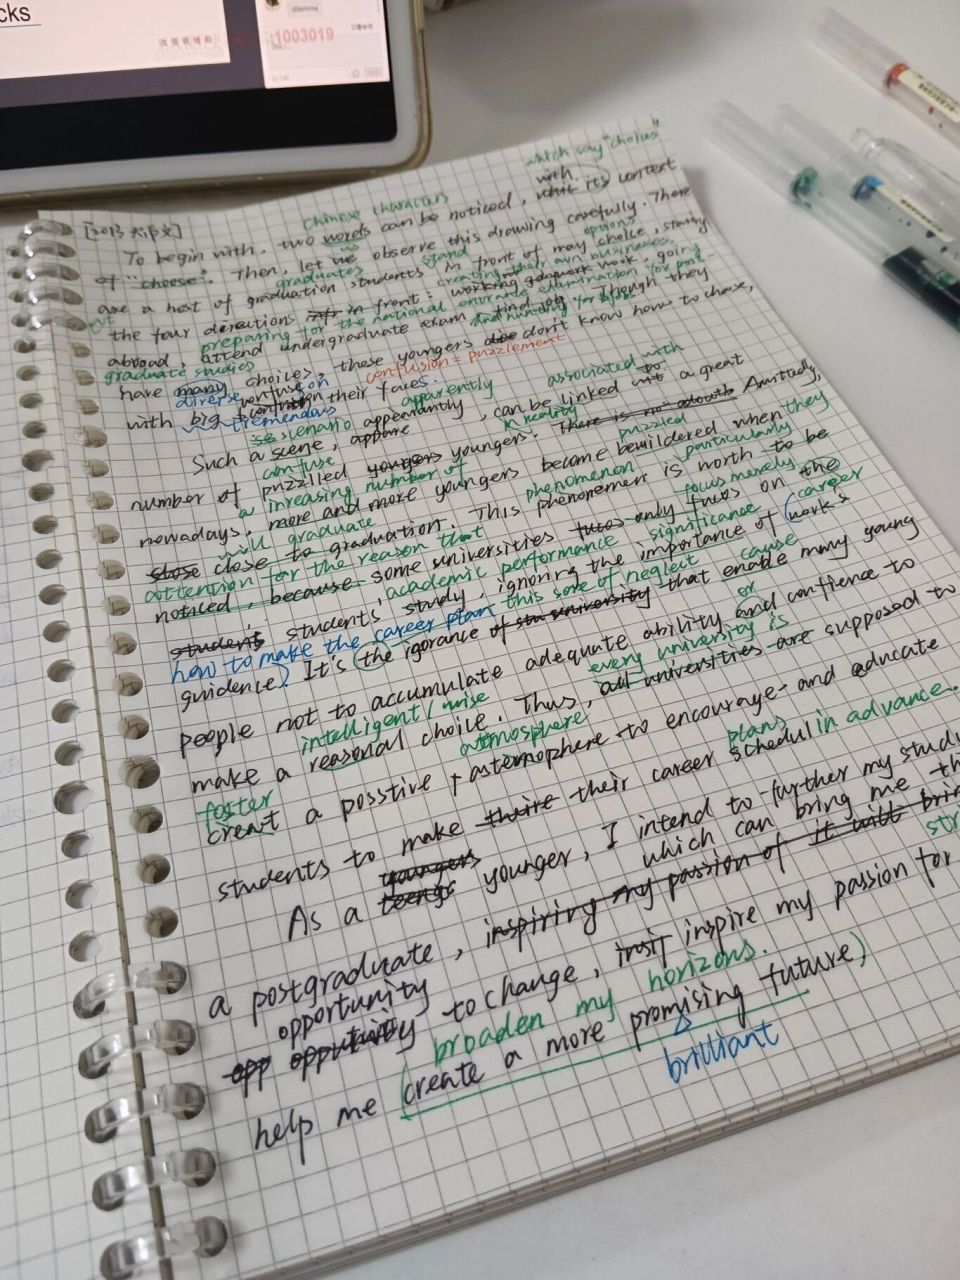 cks
dilemma
1003019
[2013 大作文]
Chinese characters
which say "choices"
with
To begin with, two words can be noticed, with its context
of "choose". Then, let us observe this drawing carefully. There
graduates stand options
are a host of graduation students in front of may choice, standing
creating their own businesses,
the four derections in front: working, going
preparing for the national entrance examination for
and hunting for jobs
abroad, attend undergraduate exam, find job. Though they
graduate studies
have many choices, these youngers don't know how to chose,
diverse confusion = puzzlement
with big on their faces.
tremendous
scenario apparently associated with
Such a scene, appearantly, can be linked to a great
confuse in reality
number of puzzlled youngers. Amittady,
a increasing number of puzzled they
nowadays, more and more youngers become bewildered when
will graduate phenomenon particularly
close to graduation. This phenonemen is worth to be
attention for the reason that focus merely
noticed, because some universities only fucos on the
academic performance significance career
students' study, ignoring the importance of (work's
how to make the career plan this sore of neglect cause
guidence). It's the igorance that enable many young
or
people not to accumulate adequate ability and confience to
intelligent / wise every university is
make a reasonal choice. Thus, all universities are supposed to
foster atmosphere
creat a posstive + astemophere to encourage and educate
plans in advance.
students to make their career schedul
youngers
As a younger, I intend to further my study
which can bring me
a postgraduate, inspiring my passion of it will
opportunity
to change, inspire my passion for
broaden my horizons.
help me (create a more promising future)
brilliant